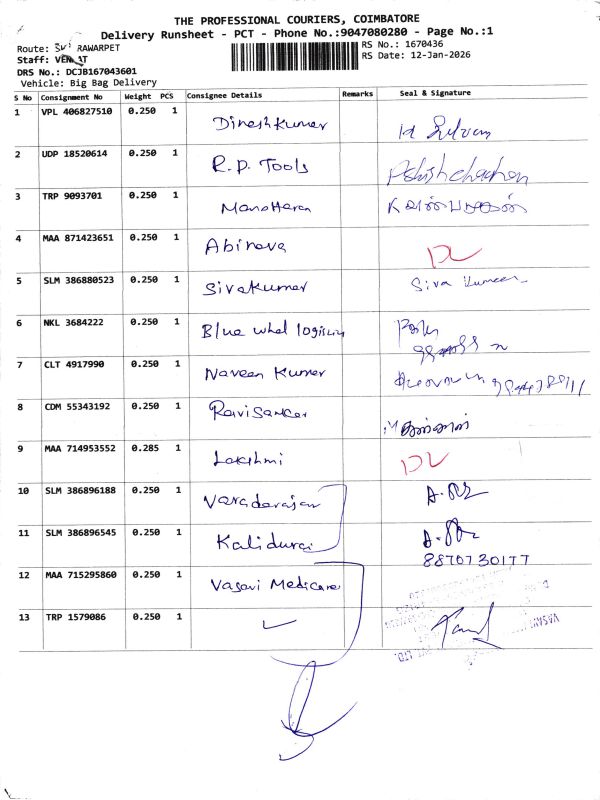 THE PROFESSIONAL COURIERS, COIMBATORE
Delivery Runsheet - PCT - Phone No.:9047080280 - Page No.:1
Route: RAWARPET
RS No.: 1670436
Staff:
RS Date: 12-Jan-2026
DRS No.: DCJB167043601
Vehicle: Big Bag Delivery
S No Consignment No Weight PCS Consignee Details Remarks Seal & Signature
1 VPL 406827510 0.250 1 Dineshkumar
2 UDP 18520614 0.250 1 R.P. Tools
3 TRP 9093701 0.250 1 Manoharan
4 MAA 871423651 0.250 1 Abinava DL
5 SLM 386880523 0.250 1 Sivakumar Siva Kumar
6 NKL 3684222 0.250 1 Blue whel logistiy
7 CLT 4917990 0.250 1 Naveen Kumar
8 CDM 55343192 0.250 1 Ravisankar
9 MAA 714953552 0.285 1 Lakshmi DL
10 SLM 386896188 0.250 1 Varadarajan
11 SLM 386896545 0.250 1 Kalidurai
8870730177
12 MAA 715295860 0.250 1 Vasavi Medicare
13 TRP 1579086 0.250 1